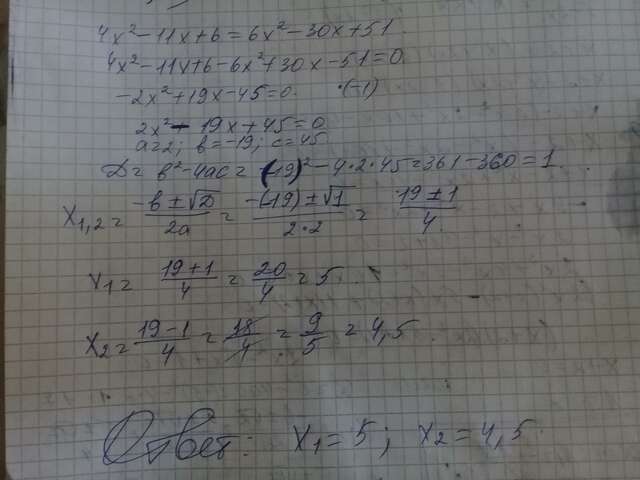 4x² - 11x + 6 = 6x² - 30x + 51.
4x² - 11x + 6 - 6x² + 30x - 51 = 0.
-2x² + 19x - 45 = 0. ·(-1)
2x² - 19x + 45 = 0
a = 2; b = -19; c = 45.
D = b² - 4ac = (-19)² - 4·2·45 = 361 - 360 = 1.
X1,2 = (-b ± √D)/(2a) = (-(-19) ± √1)/(2·2) = (19 ± 1)/4.
X1 = (19 + 1)/4 = 20/4 = 5.
X2 = (19 - 1)/4 = 18/4 = 9/5 = 4,5.
Ответ: X1 = 5; X2 = 4,5.